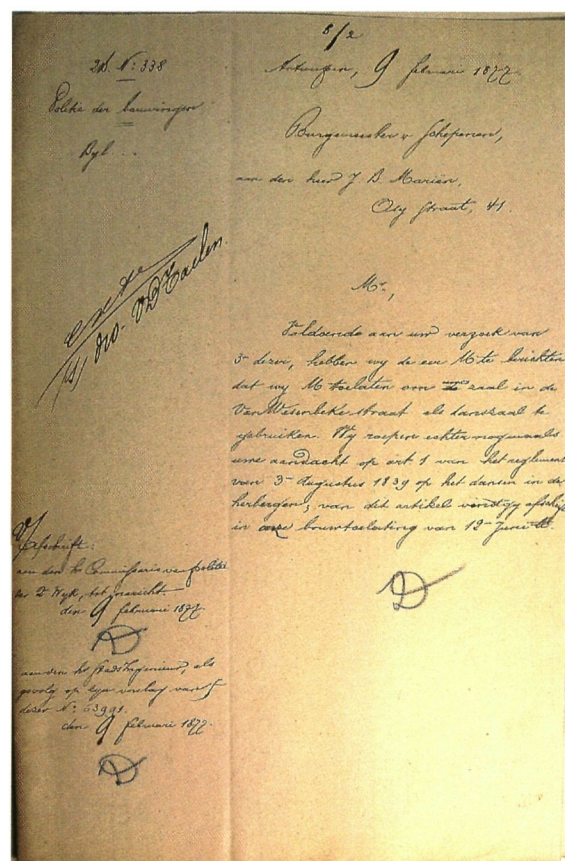 5/2
2d. N: 338
Politie der bouwingen
Byl...
Antwerpen, 9 februari 1877
Burgemeester & Schepenen,
aan den heer J. B. Mariën,
Ouy straat, 41.
Mr.,
Voldoende aan uw verzoek van
3n dezer, hebben wy de eer M te berichten
dat wy M toelaten om de zaal in de
Van Wesenbeke straat als danszaal te
gebruiken. Wy roepen echter nogmaals
uwe aandacht op art 1 van het reglement
van 3n Augustus 1839 op het dansen in de
herbergen, van dit artikel vondt gy afschrift
in onze bouwtoelating van 12n Juni
Afschrift:
aan den hr Commissaris van politie
der 2e Wyk, tot naricht
den 9 februari 1877
D
aan den hr Stads Ingenieur, als
gevolg op zyn verslag van 5
dezer N: 53991.
den 9 februari 1877.
D
D